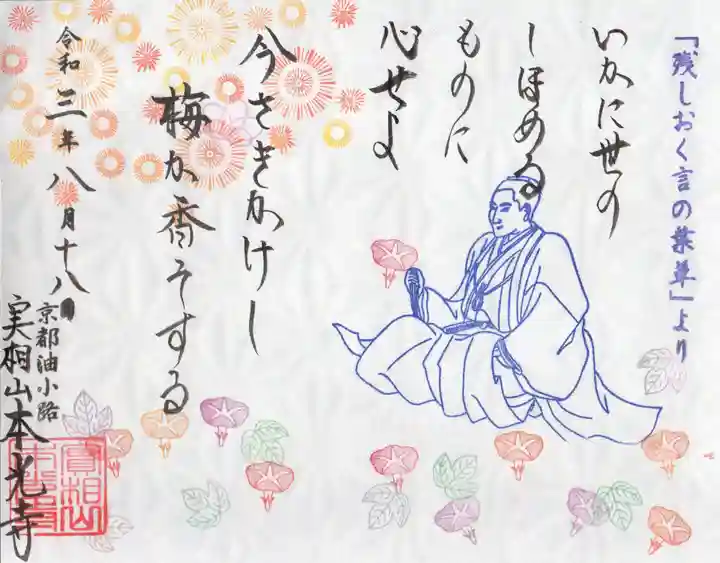 「残しおく言の葉草」より
いかに世の
しほめる
ものに
心せよ
今さきかけし
梅か香そする
令和三年八月十八
京都油小路
実相山本光寺